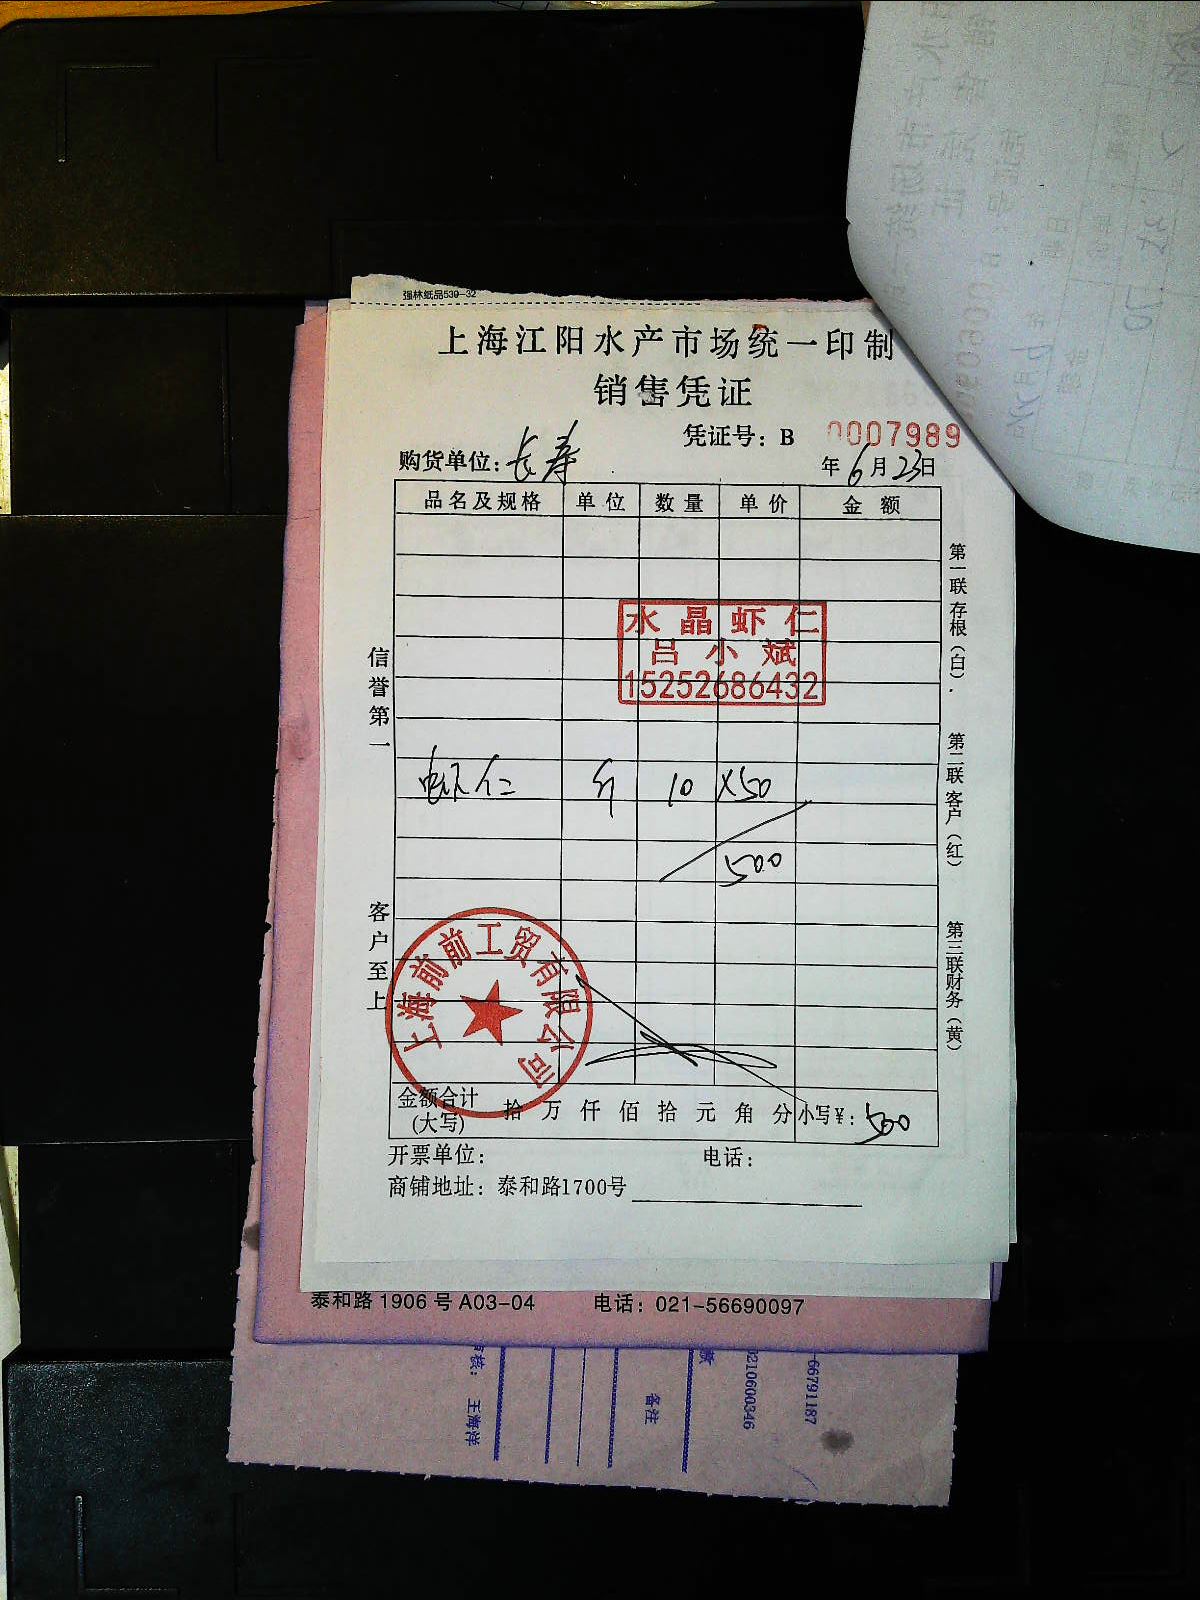 强林纸品539-32
上海江阳水产市场统一印制
销售凭证
凭证号：B 0007989
购货单位：长寿
年6月23日
品名及规格 单位 数量 单价 金额
水晶虾仁
吕小斌
15252686432
虾仁 斤 10 X50
500
信誉第一
客户至上
第一联存根（白）.
第二联客户（红）
第三联财务（黄）
上海前前工贸有限公司
金额合计
(大写)
拾 万 仟 佰 拾 元 角 分 小写¥：500
开票单位： 电话：
商铺地址：泰和路1700号
泰和路 1906 号 A03-04 电话：021-56690097
王海洋
备注
0210600346
-66791187